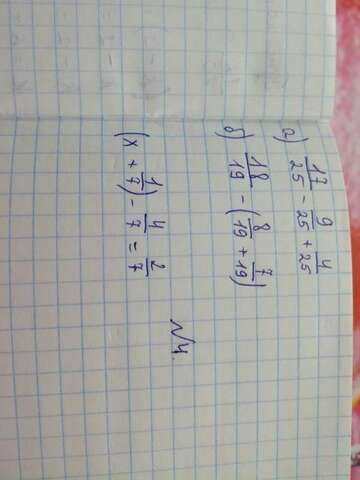 а) 17/25 - 9/25 + 4/25
б) 18/19 - (8/19 + 7/19)
№4.
(x + 1/7) - 4/7 = 2/7